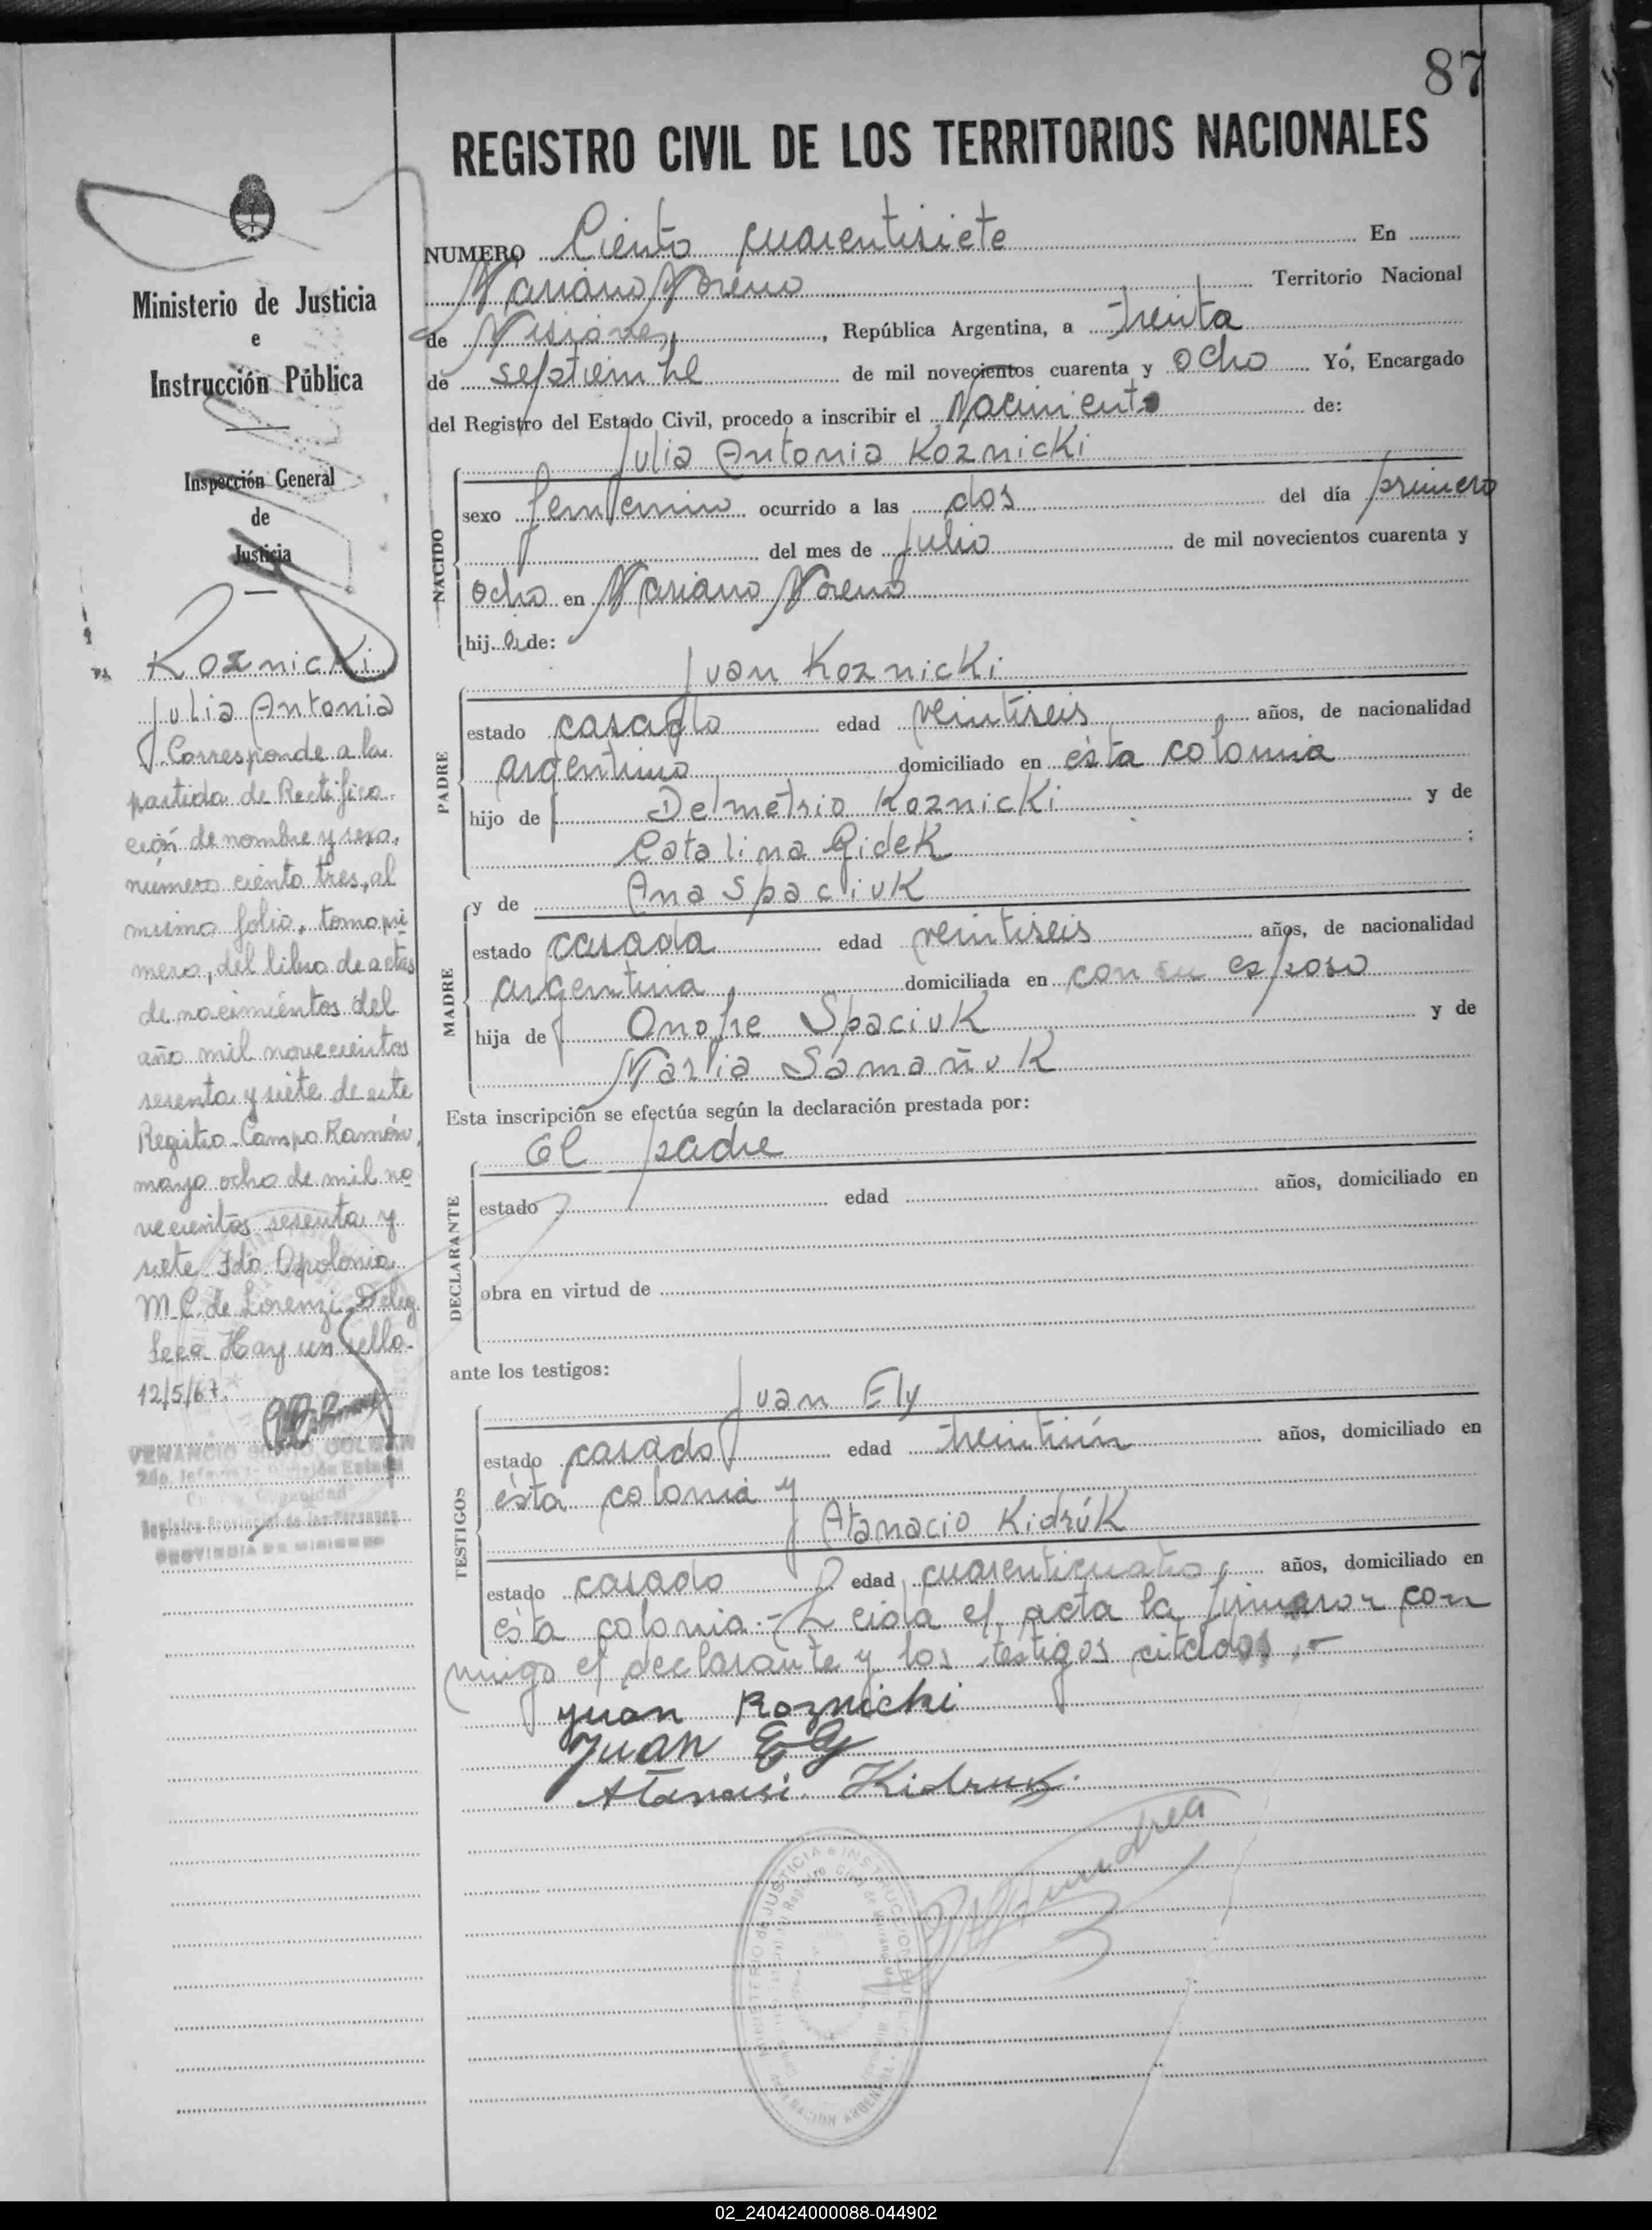 87
REGISTRO CIVIL DE LOS TERRITORIOS NACIONALES
NUMERO Ciento cuarentisiete En
Mariano Moreno Territorio Nacional
de Misiones, República Argentina, a treinta
de septiembre de mil novecientos cuarenta y ocho Yó, Encargado
del Registro del Estado Civil, procedo a inscribir el Nacimiento de:
Julia Antonia Koznicki
NACIDO
sexo femenino ocurrido a las dos del día primero
del mes de Julio de mil novecientos cuarenta y
ocho en Mariano Moreno
hij a de:
Juan Koznicki
PADRE
estado casado edad veintiseis años, de nacionalidad
argentino domiciliado en ésta colonia
hijo de Delmetrio Koznicki y de
Catalina Gidek ;
y de Ana Spaciuk
MADRE
estado casada edad veintiseis años, de nacionalidad
argentina domiciliada en con su esposo
hija de Onofre Spaciuk y de
María Samañuk
Esta inscripción se efectúa según la declaración prestada por:
El padre
DECLARANTE
estado edad años, domiciliado en
obra en virtud de
ante los testigos:
Juan Ely
TESTIGOS
estado casado edad treintiún años, domiciliado en
ésta colonia y
Atanacio Kidrúk
estado casado edad cuarenticuatro años, domiciliado en
ésta colonia.- Leida el acta la firmaron con
migo el declarante y los testigos citados.-
Juan Koznicki
Juan Ely
Atanasi Kidruk.
MINISTERIO de JUSTICIA e INSTRUCCION PUBLICA
NACION ARGENTINA
Ministerio de Justicia
e
Instrucción Pública
Inspección General
de
Justicia
Koznicki
Julia Antonia
Corresponde a la
partida de Rectifica-
ción de nombre y sexo,
número ciento tres, al
mismo folio, tomo pri
mero, del libro de actas
de nacimientos del
año mil novecientos
sesenta y siete de este
Registro. Campo Ramón,
mayo ocho de mil no
vecientos sesenta y
siete. Fdo. Apolonia
M. C. de Lorenzi. Deleg.
Hay un sello.
12/5/67.
VENANCIO COLMAN
2do. Jefe
Registro Provincial de las Personas
PROVINCIA DE MISIONES
02_240424000088-044902